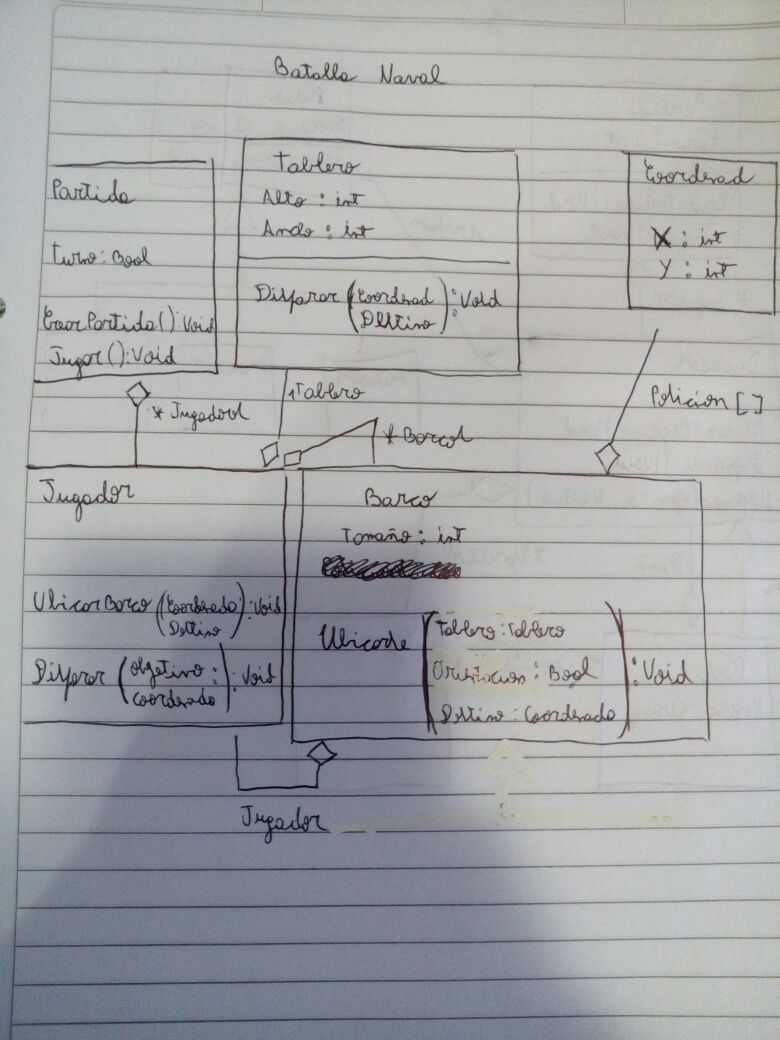 Batalla Naval
Partida
Turno: Bool
CrearPartida(): Void
Jugar(): Void
Tablero
Alto: int
Ancho: int
Disparar (Coordenad
Destino): Void
Coordenad
X: int
Y: int
* Jugadores
1 Tablero
* Barcos
Posicion []
Jugador
UbicarBarco (Coordenada
Destino): Void
Disparar (objetivo:
coordenada): Void
Barco
Tamaño: int
Ubicarse (Tablero: Tablero
Orientacion: Bool
Destino: Coordenada): Void
Jugador